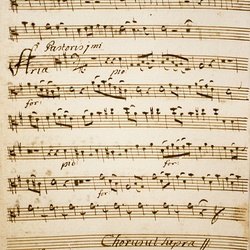 Pastoris 1mi
Aria pia
for:
pia for:
for
Chorus ut supra ||